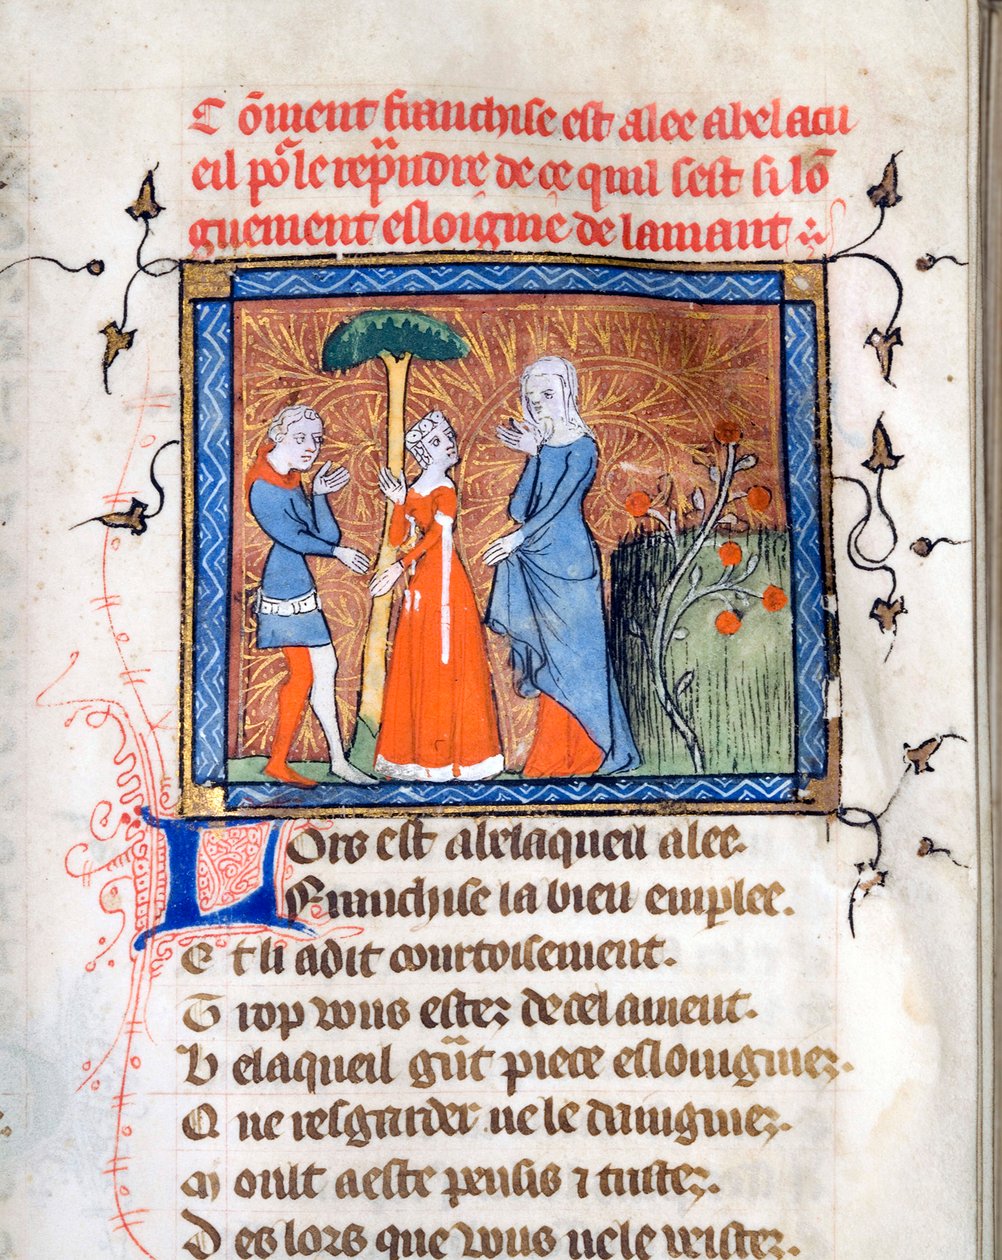 Cõment franchise est alee abelacu
eil põ le rep̃ndre de ce quil sest si lõ
guement esloigme de lamant
Lors est abelaqueil alee.
Franchise la bien emplee.
Et li a dit courtoisement.
Trop wus estez de cel ament.
Belaqueil gñt piece eslouigniez.
Que resgarder ne le daingniez.
Moult a este pensis ⁊ tristez.
Des lors que wus ne le veistez.